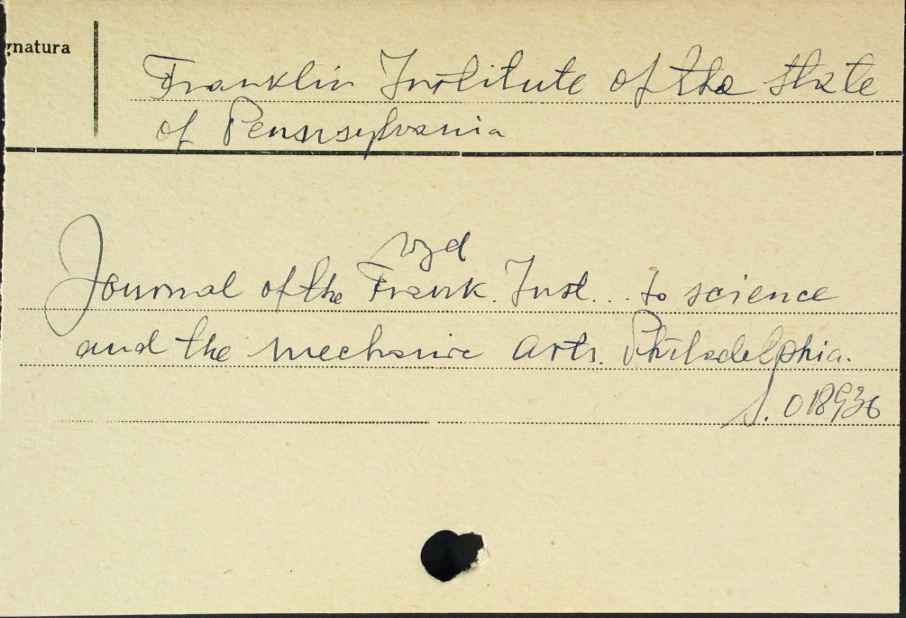 gnatura
Franklin Institute of the State
of Pennsylvania
vyd
Journal of the Frank. Inst... to science
and the mechanic Arts. Philadelphia.
S. 018936